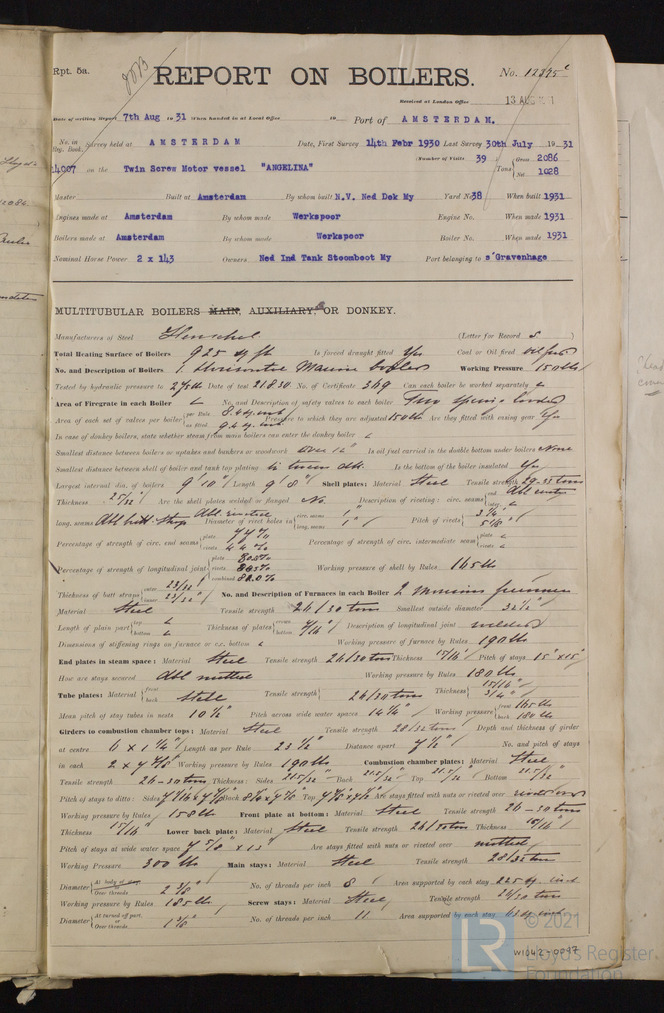 Rpt. 5a.
REPORT ON BOILERS.
No. 12395c
Received at London Office
13 AUG
Date of writing Report 7th Aug 19 31 When handed in at Local Office 19 Port of AMSTERDAM.
No. in Reg. Book. Survey held at AMSTERDAM Date, First Survey 14th Febr 1930 Last Survey 30th July 19 31
(Number of Visits 39
on the Twin Screw Motor vessel "ANGELINA" Tons Gross 2086 Net 1028
Master Built at Amsterdam By whom built N.V. Ned Dok My Yard No. 38 When built 1931
Engines made at Amsterdam By whom made Werkspoor Engine No. When made 1931
Boilers made at Amsterdam By whom made Werkspoor Boiler No. When made 1931
Nominal Horse Power 2 x 143 Owners Ned Ind Tank Stoomboot My Port belonging to s'Gravenhage
MULTITUBULAR BOILERS MAIN, AUXILIARY, OR DONKEY.
Manufacturers of Steel Henschel (Letter for Record S)
Total Heating Surface of Boilers 925 sq ft Is forced draught fitted Yes Coal or Oil fired oil fired
No. and Description of Boilers 1 Horizontal Marine boiler Working Pressure 150 lbs
Tested by hydraulic pressure to 275 lb Date of test 21830 No. of Certificate 369 Can each boiler be worked separately
Area of Firegrate in each Boiler No. and Description of safety valves to each boiler Two Spring loaded
Area of each set of valves per boiler per Rule 8.4 sq. inch as fitted 9.2 sq. inch Pressure to which they are adjusted 150 lbs Are they fitted with easing gear Yes
In case of donkey boilers, state whether steam from main boilers can enter the donkey boiler
Smallest distance between boilers or uptakes and bunkers or woodwork over 12" Is oil fuel carried in the double bottom under boilers None
Smallest distance between shell of boiler and tank top plating Is the bottom of the boiler insulated Yes
Largest internal dia. of boilers 9'10" Length 9'8" Shell plates: Material Steel Tensile strength 29-33 tons
Thickness 25/32" Are the shell plates welded or flanged No Description of riveting: circ. seams end dbl riveted inter.
long. seams dbl butt straps Diameter of rivet holes in circ. seams 1" long. seams 1" Pitch of rivets
Percentage of strength of circ. end seams plate rivets 44% Percentage of strength of circ. intermediate seam plate rivets
Percentage of strength of longitudinal joint plate rivets combined Working pressure of shell by Rules 165 lb
Thickness of butt straps outer 23/32" inner 23/32" No. and Description of Furnaces in each Boiler 2 Morison furnaces
Material Steel Tensile strength 26/30 tons Smallest outside diameter
Length of plain part top bottom Thickness of plates crown bottom 7/16" Description of longitudinal joint welded
Dimensions of stiffening rings on furnace or c.c. bottom Working pressure of furnace by Rules 190 lbs
End plates in steam space: Material Steel Tensile strength 26/30 tons Thickness 15/16" Pitch of stays 15" x 15"
How are stays secured dbl nutted Working pressure by Rules 180 lbs
Tube plates: Material front back Steel Tensile strength 26/30 tons Thickness 15/16" 3/4"
Mean pitch of stay tubes in nests 10 1/2" Pitch across wide water spaces 14 1/4" Working pressure front 165 lbs back 180 lbs
Girders to combustion chamber tops: Material Steel Tensile strength 28/32 tons Depth and thickness of girder
at centre 6 x 1 1/4" Length as per Rule 23 1/2" Distance apart 7 1/2" No. and pitch of stays
in each 2 x 7 7/8" Working pressure by Rules 190 lbs Combustion chamber plates: Material Steel
Tensile strength 26-30 tons Thickness: Sides 21.5/32" Back 21.5/32" Top Bottom
Pitch of stays to ditto: Sides Back Top Are stays fitted with nuts or riveted over
Working pressure by Rules 158 lb Front plate at bottom: Material Steel Tensile strength 26-30 tons
Thickness 15/16" Lower back plate: Material Steel Tensile strength 26/30 tons Thickness 15/16"
Pitch of stays at wide water space 7 5/8" x 13" Are stays fitted with nuts or riveted over nutted
Working Pressure 300 lbs Main stays: Material Steel Tensile strength 28/32 tons
Diameter At body of stay, or Over threads 2 3/8" No. of threads per inch 8 Area supported by each stay 225 sq. inch
Working pressure by Rules 185 lb Screw stays: Material Steel Tensile strength 26/30 tons
Diameter At turned off part, or Over threads 1 3/8" No. of threads per inch 11 Area supported by each stay 63 sq. inch
© 2021
LR
Lloyd's Register
Foundation
W1042-0047